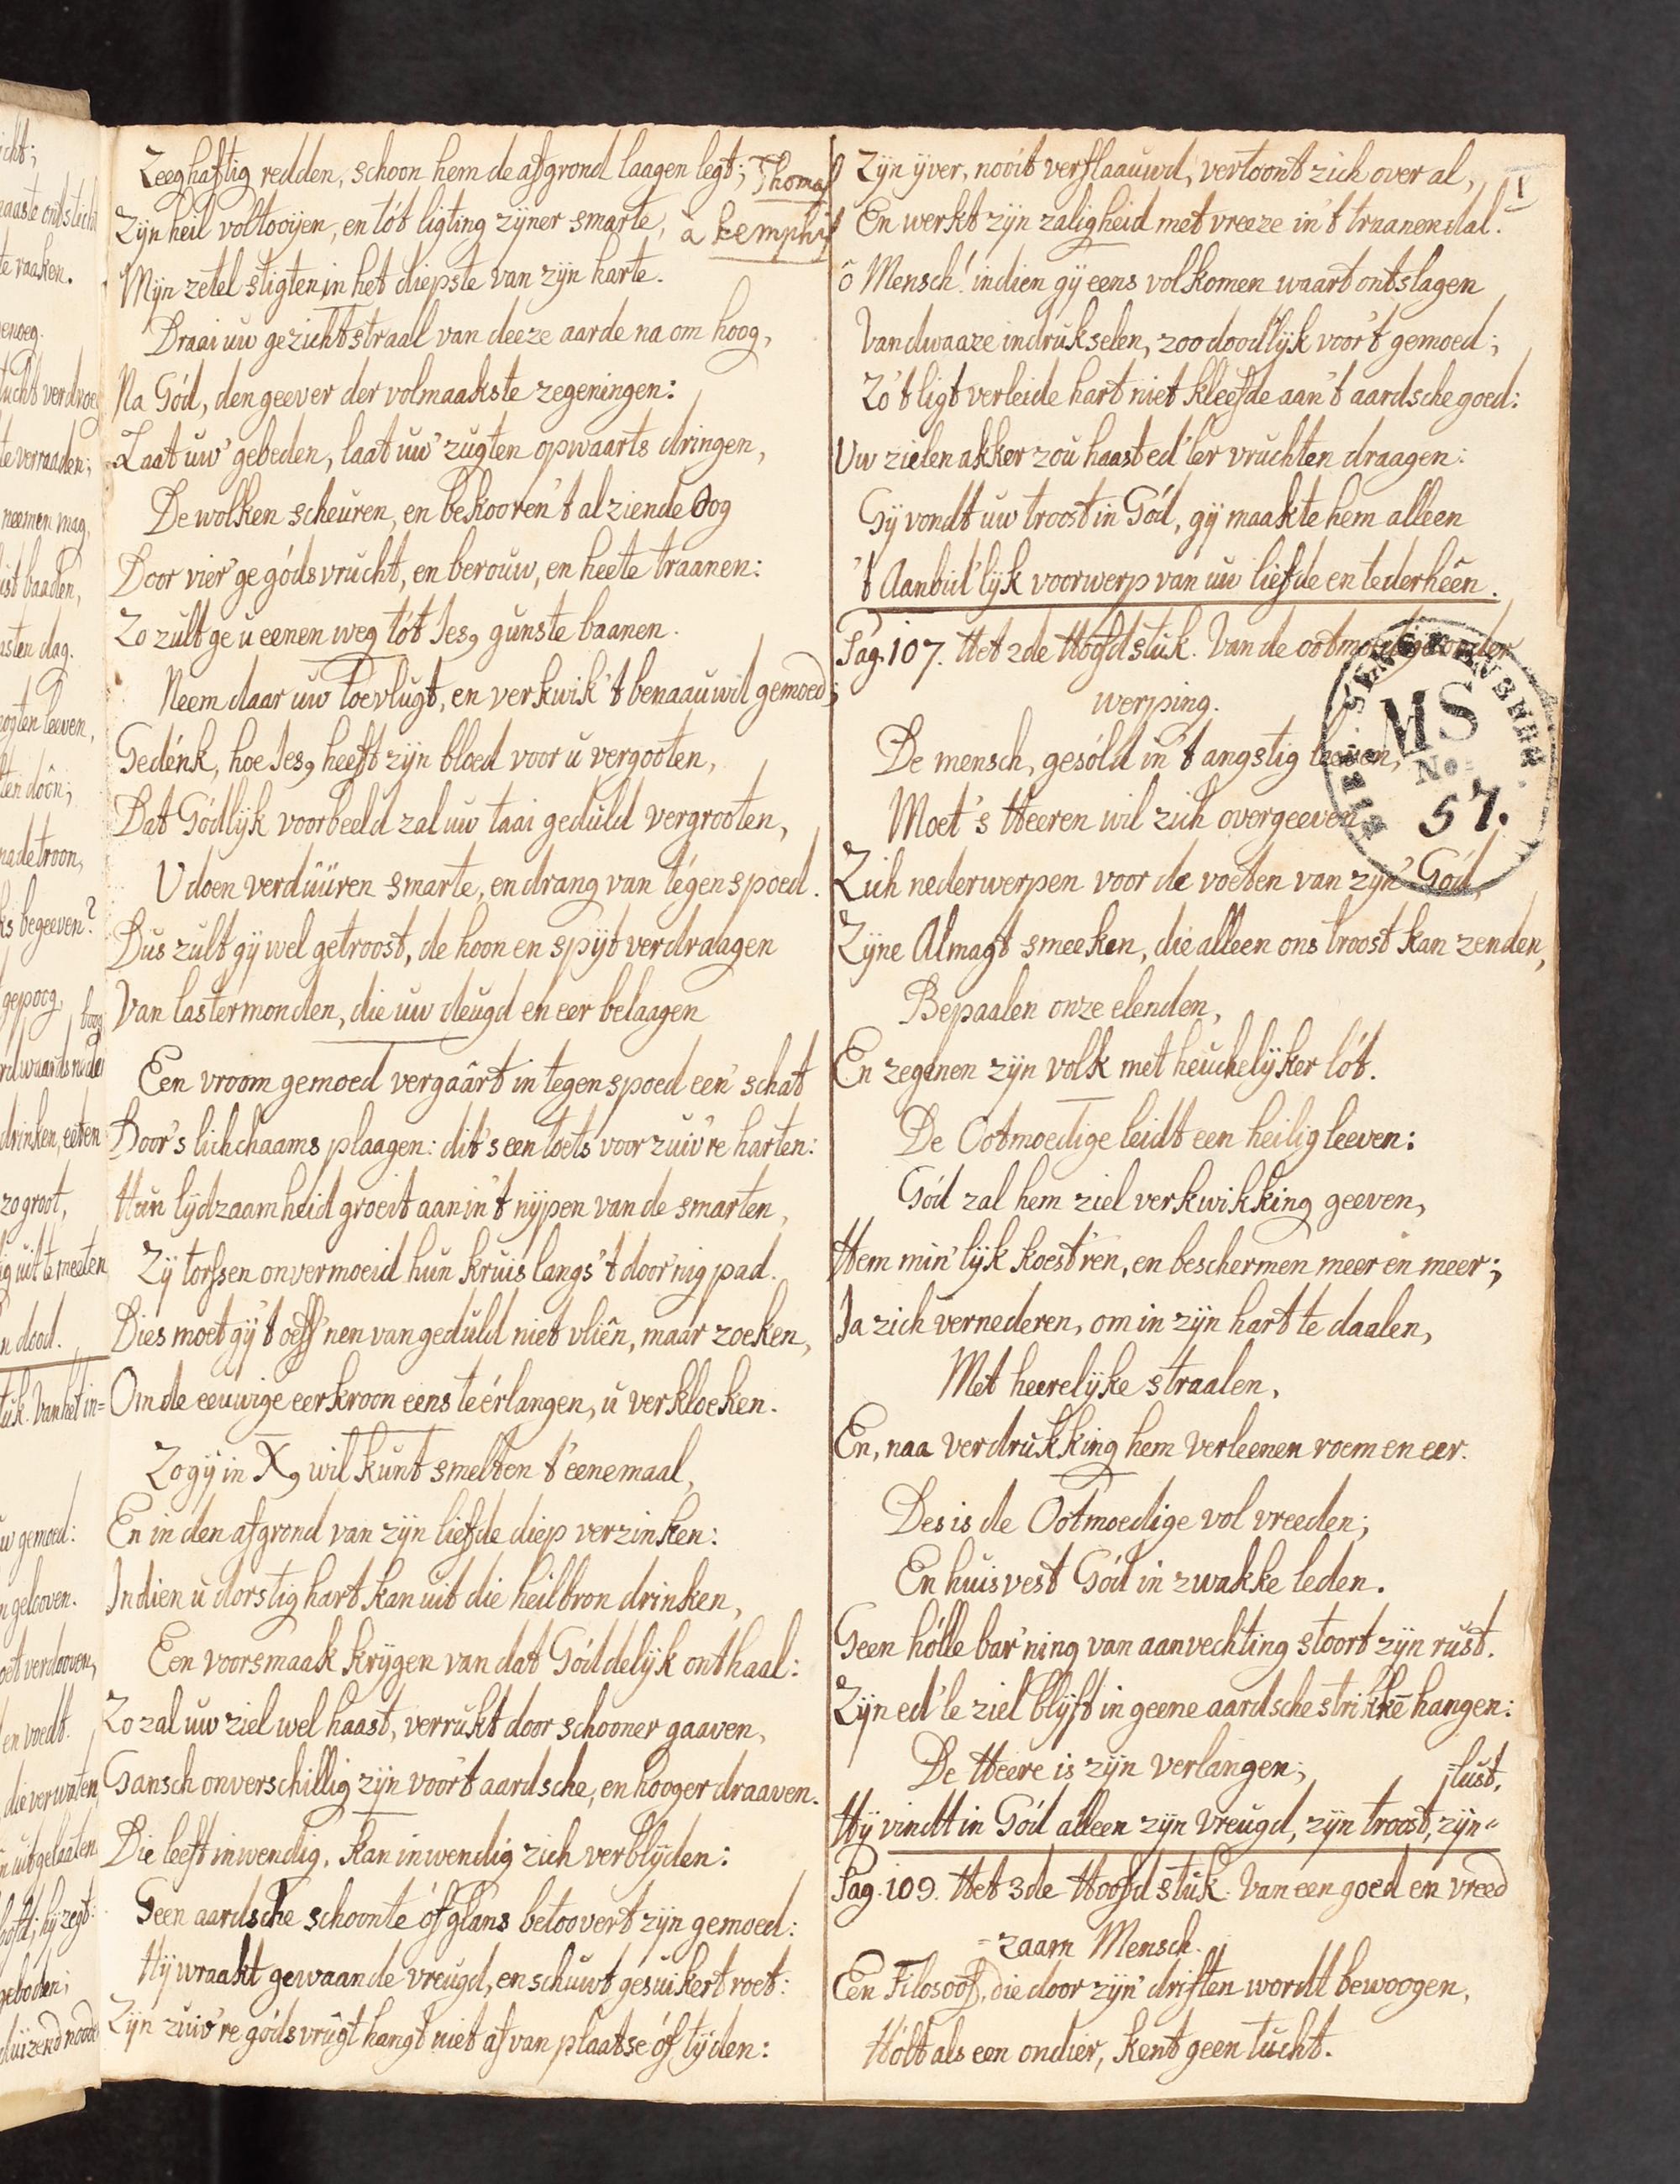 Zeeghaftig redden, schoon hem de afgrond laagen legt;
Zijn heil voltooijen, en tót ligting zijner smarte,
Thomas
à kemphis
Mijn zetel stigten in het diepste van zijn harte.
Draai uw gezichtstraal van deeze aarde na om hoog,
Na Gód, den geever der volmaakste zegeningen:
Laat uw' gebeden, laat uw' zugten opwaarts dringen,
De wolken scheuren, en bekooren 't alziende Oog
Door vier'ge gódsvrucht, en berouw, en heete traanen:
Zo zult ge u eenen weg tót Jes9 gunste baanen.
Neem daar uw toevlugt, en verkwik 't benaauwd gemoed;
Gedénk, hoe Jes9 heeft zijn bloed voor u vergooten,
Dat Gódlijk voorbeeld zal uw taai geduld vergrooten,
U doen verdüüren smarte, en drang van tégenspoed.
Dus zult gij wel getroost, de hoon en spijt verdraagen
Van lastermonden, die uw deugd en eer belaagen
Een vroom gemoed vergaârt in tegenspoed een' schat
Door 's lichchaams plaagen: dit 's een toets voor zuiv're harten:
Hun lijdzaamheid groeit aan in 't nijpen van de smarten,
Zij torssen onvermoeid hun kruis langs 't door'nig pad.
Dies moet gij 't oeff'nen van geduld niet vliên, maar zoeken,
Om de eeuwige eerkroon eens te érlangen, u verkloeken.
Zo gij in X9 wil kunt smelten t' eenemaal,
En in den afgrond van zijn liefde diep verzinken:
Indien u dorstig hart kan uit die heilbron drinken,
Een voorsmaak krijgen van dat Góddelijk onthaal:
Zo zal uw ziel wel haast, verrukt door schooner gaaven,
Gansch onverschillig zijn voor't aardsche, en hooger draaven.
Die leeft inwendig, kan inwendig zich verblijden:
Geen aardsche schoonte óf glans betoovert zijn gemoed:
Hij wraakt gewaande vreugd, en schuwt gesuikert roet:
Zijn zuiv're gódsvrügt hangt niet af van plaatse óf tijden:
Zijn ijver, nooit verflaauwd, vertoont zich over al,
1
En werkt zijn zaligheid met vreeze in 't traanendal.
ô Mensch! indien gij eens volkomen waart ontslagen
Van dwaaze indrukselen, zoo doodlijk voor't gemoed;
Zo 't ligt verleide hart niet kleefde aan 't aardsche goed:
Uw zielen akker zou haast ed'ler vruchten draagen:
Gij vondt uw troost in Gód, gij maakte hem alleen
't Aanbid'lijk voorwerp van uw liefde en tederheên.
Pag. 107. Het 2de Hoofdstuk. Van de ootmoedige onder
werping.
De mensch, gesóld in 't angstig leeven,
Moet 's Heeren wil zich overgeeven
MS
No:
57.
Zich nederwerpen voor de voeten van zijn' Gód,
Zijne Almagt smeeken, die alleen ons troost kan zenden,
Bepaalen onze elenden,
En zegenen zijn volk met heuchelijker lót.
De Ootmoedige leidt een heilig leeven:
Gód zal hem ziel verkwikking geeven,
Hem min'lijk koest'ren, en beschermen meer en meer;
Ja zich vernederen, om in zijn hart te daalen,
Met heerelijke straalen,
En, naa verdrukking hem verleenen roem en eer.
Des is de Ootmoedige vol vreeden;
En huisvest Gód in zwakke leden.
Geen hólle bar'ning van aanvechting stoort zijn rust.
Zijn ed'le ziel blijft in geene aardsche strikkē hangen:
De Heere is zijn verlangen;
=lust,
Hij vindt in Gód alleen zijn vreugd, zijn troost, zijn=
Pag. 109. Het 3de Hoofdstuk. Van een goed en vreed
=zaam Mensch.
Een Filosoof, die door zijn' driften wordt bewoogen,
Hólt als een ondier, kent geen tucht.